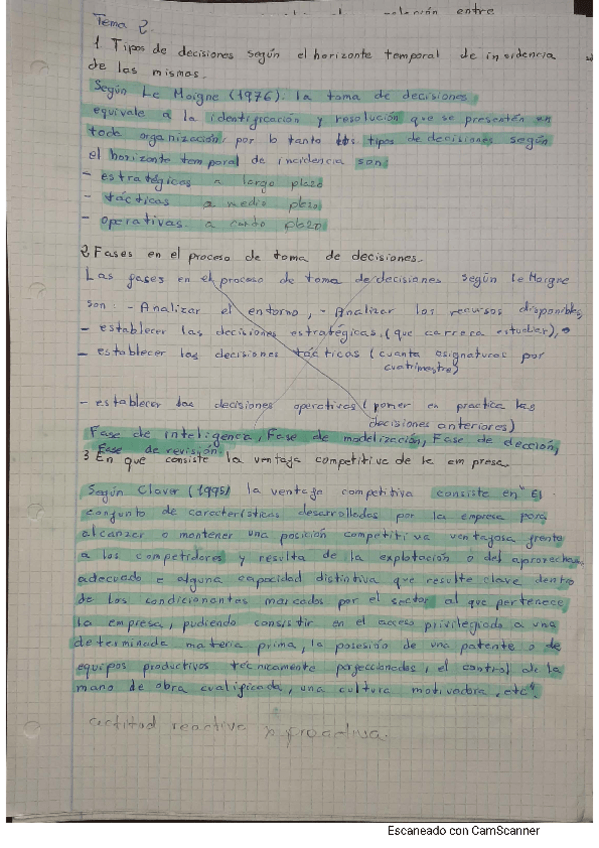 relación entre
Tema 2.
1. Tipos de decisiones según el horizonte temporal de insidencia
de las mismas.
Según Le Moigne (1976). la toma de decisiones
equivale a la identificación y resolución que se presentén en
toda organización, por lo tanto los tipos de decisiones según
el horizonte temporal de incidencia son:
- estratégicas a largo plazo
- tácticas a medio plazo
- operativas. a corto plazo
2. Fases en el proceso de toma de decisiones.
Las fases en el proceso de toma de decisiones según le Moigne
son: - Analizar el entorno, - Analizar los recursos disponibles,
- establecer las decisiones estratégicas. (que carrera estudiar),
- establecer las decisiones tácticas (cuanta asignaturas por
cuatrimestre)
- establecer las decisiones operativas (poner en practica las
decisiones anteriores)
Fase de inteligencia, Fase de modelización, Fase de dección,
Fase de revisión.
3 En que consiste la ventaja competitive de le empresa.
Según Claver (1995) la ventaja competitiva consiste en "El
conjunto de características desarrolladas por la empresa para
alcanzar o mantener una posición competitiva ventajosa frente
a los competidores y resulta de la explotación o del aprovecham.
adecuado e alguna capacidad distintiva que resulte clave dentro
de los condicionantes marcados por el sector al que pertenece
la empresa, pudiendo consistir en el acceso privilegiado a una
determinada materia prima, la posesión de una patente o de
equipos productivos técnicamente perfeccionados, el control de la
mano de obra cualificada, una cultura motivadora, etc".
actitud reactiva y proactiva.
Escaneado con CamScanner